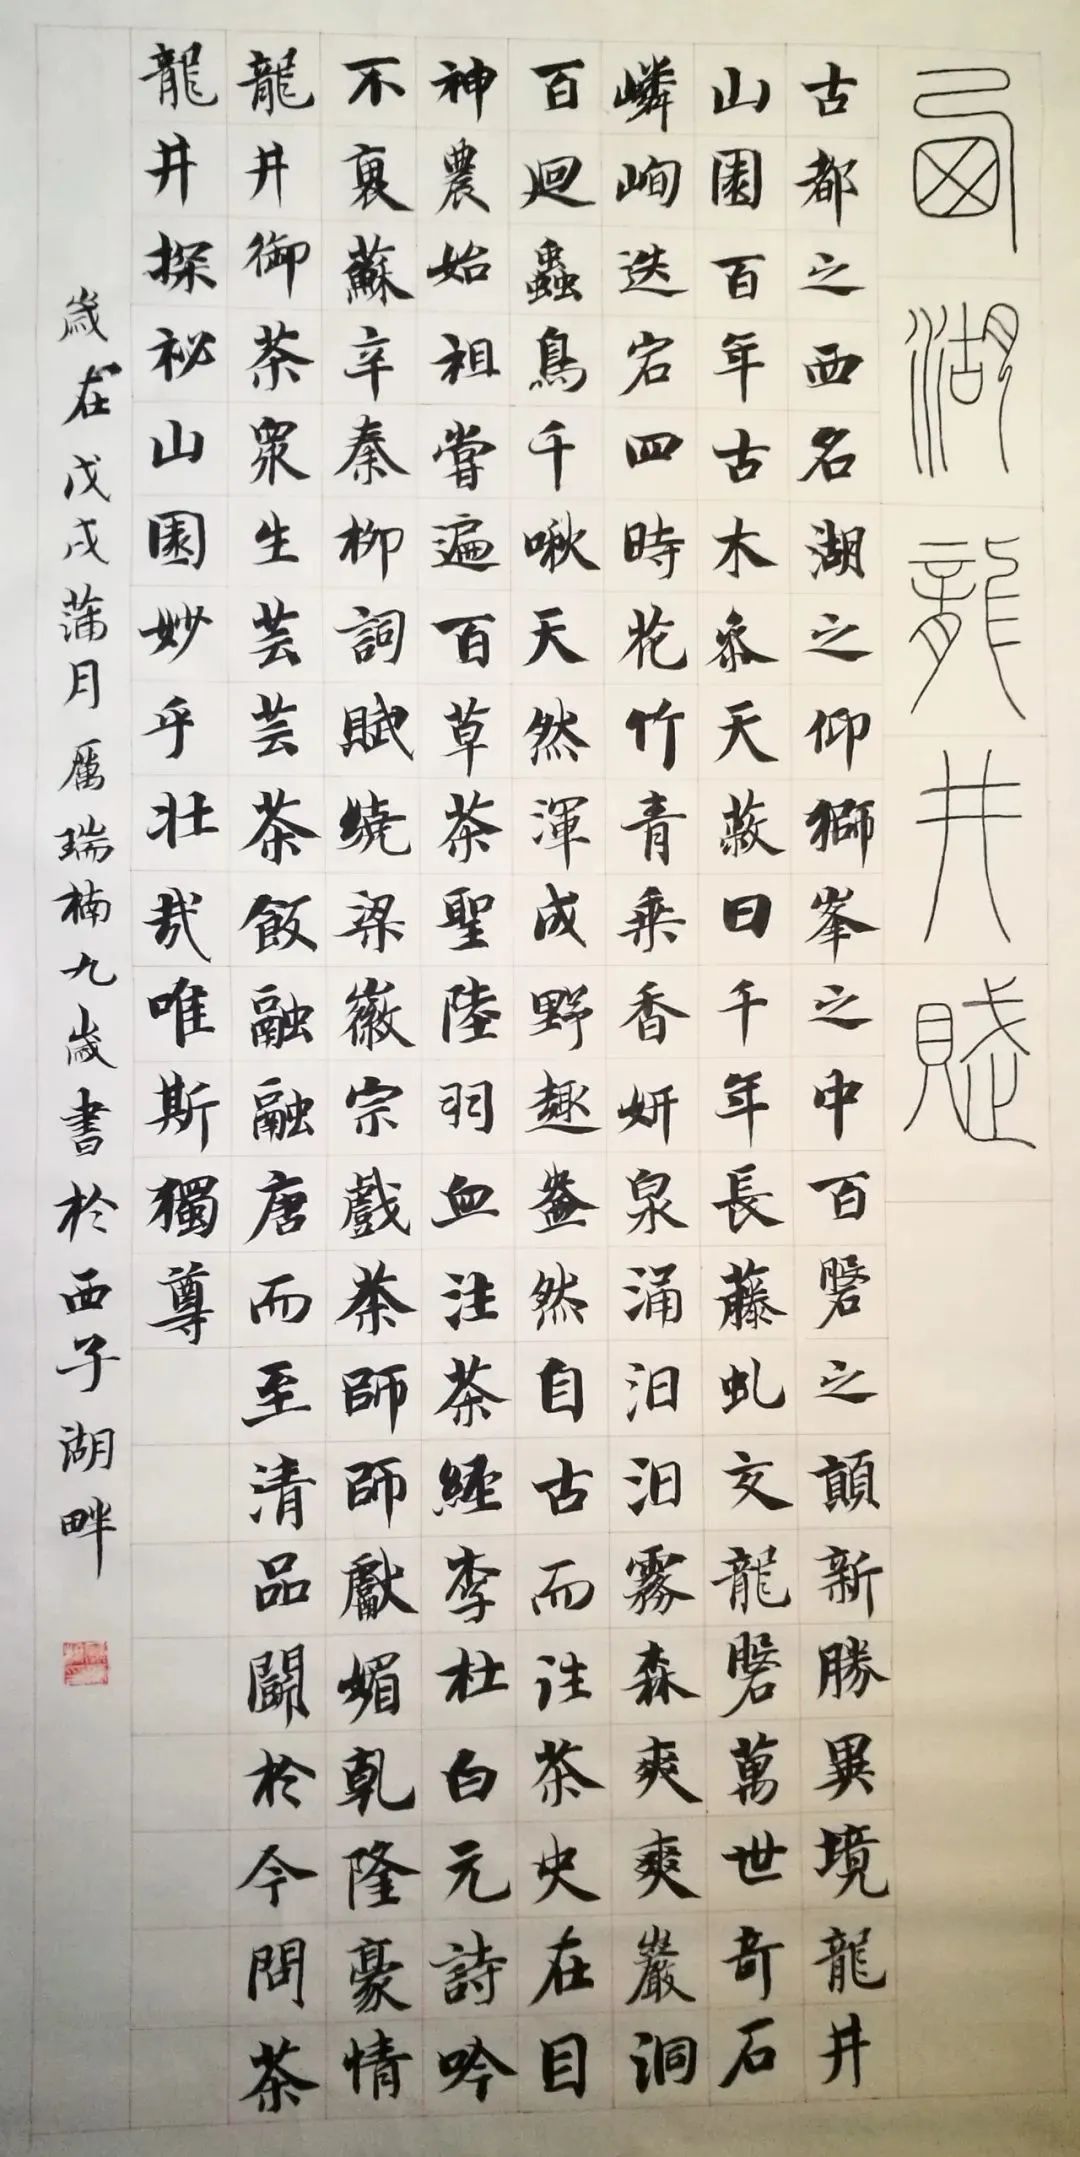 西湖龍井賦
古都之西名湖之仰獅峯之中百磐之顛新勝異境龍井
山園百年古木叅天蔽日千年長藤虬交龍磐萬世奇石
嶙峋迭宕四時花竹青乘香妍泉涌汩汩霧森爽爽巖洞
百迴蟲鳥千啾天然渾成野趣盎然自古而注茶史在目
神農始祖嘗遍百草茶聖陸羽血注茶經李杜白元詩吟
不裏蘇辛秦柳詞賦繞梁徽宗戲茶師師獻媚乾隆豪情
龍井御茶眾生芸芸茶飯融融唐而至清品鬭於今問茶
龍井探祕山園妙乎壯哉唯斯獨尊
歲在戊戌蒲月厲瑞楠九歲書於西子湖畔